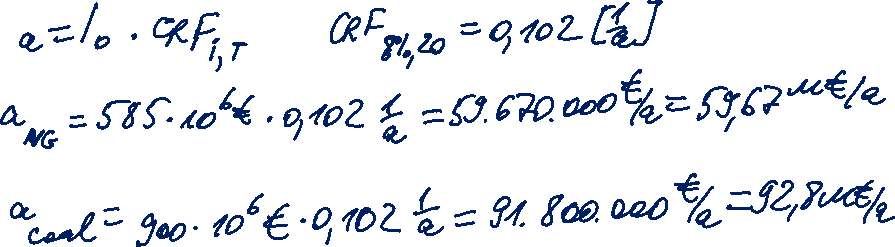 a = I₀ · CRF_{i,T} CRF_{8%,20} = 0,102 [1/a]
a_{NG} = 585 · 10⁶ € · 0,102 1/a = 59.670.000 €/a = 59,67 M€/a
a_{coal} = 900 · 10⁶ € · 0,102 1/a = 91.800.000 €/a = 92,8 M€/a